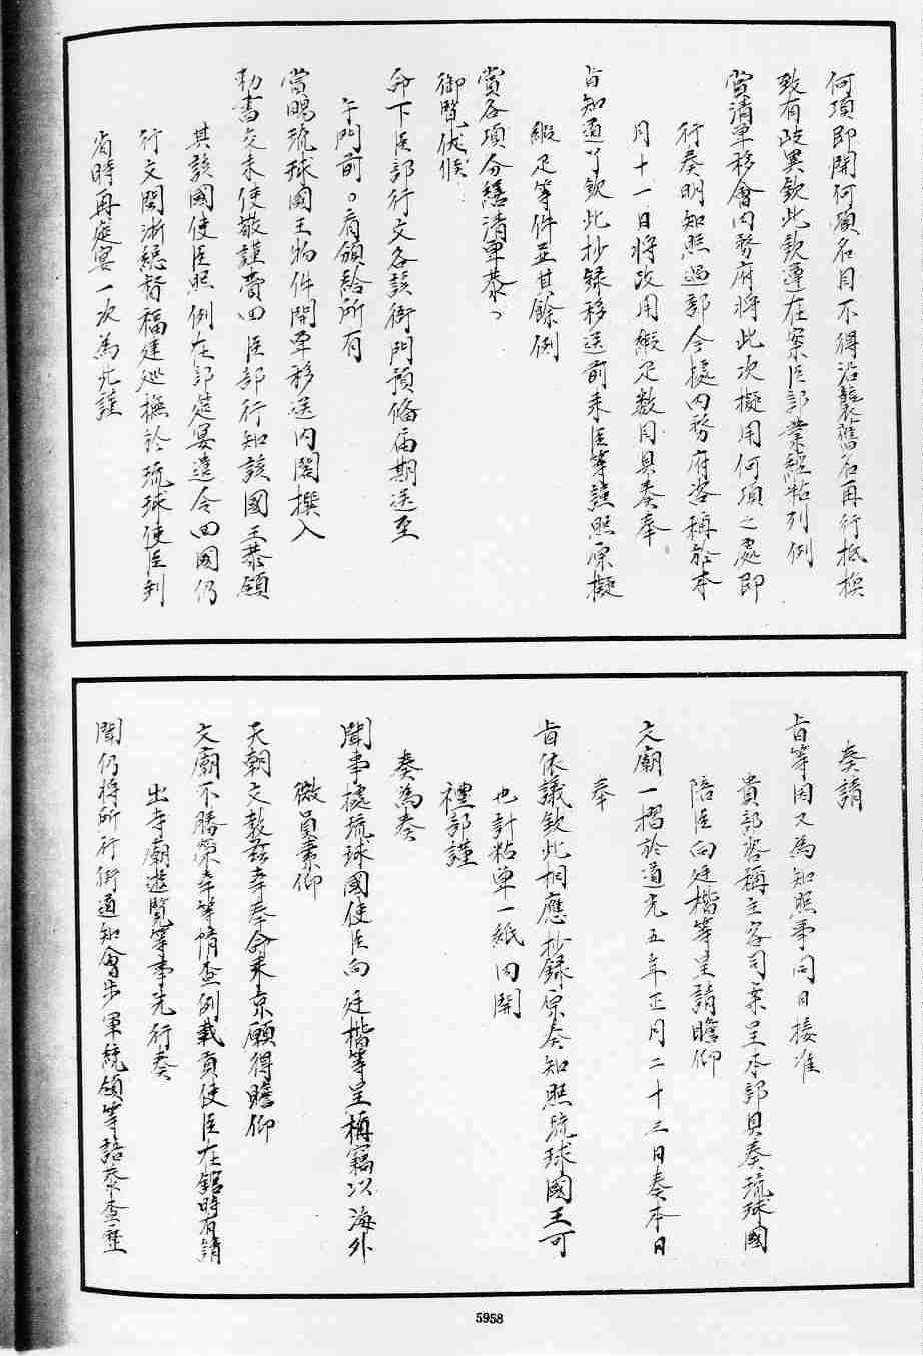 何項即開何項名目不得沿襲舊名再行抵換
致有歧異欽此欽遵在案臣部業經粘列例
賞清單移會內務府將此次擬用何項之處即
行奏明知照過部今據內務府咨稱於本
月十一日將改用緞疋數目具奏奉
旨知道了欽此抄録移送前來臣等謹照原擬
緞疋等件並其餘例
賞各項分繕清單恭
御覽伏候
命下臣部行文各該衙門預備届期送至
午門前頒給所有
當賜琉球國王物件開單移送內閣撰入
勅書交来使敬謹賫回臣部行知該國王恭領
其該國使臣照例在部筵宴遣令回國仍
行文閩浙總督福建巡撫於琉球使臣到
省時再筵宴一次為此謹
奏請
旨等因又為知照事同日接准
貴部咨稱主客司案呈本部具奏琉球國
陪臣向廷楷等呈請瞻仰
文廟一摺於道光五年正月二十三日奏本日
奉
旨依議欽此相應抄録原奏知照琉球國王可
也計粘单一紙内開
禮部謹
奏為奏
聞事據琉球國使臣向廷楷等呈稱竊以海外
微員素仰
天朝文教兹幸奉命来京願得瞻仰
文廟不勝榮幸等情查例載貢使臣在館時有請
出寺廟遊覽等事先行奏
聞仍將所行街道知會步軍統領等語恭查歷